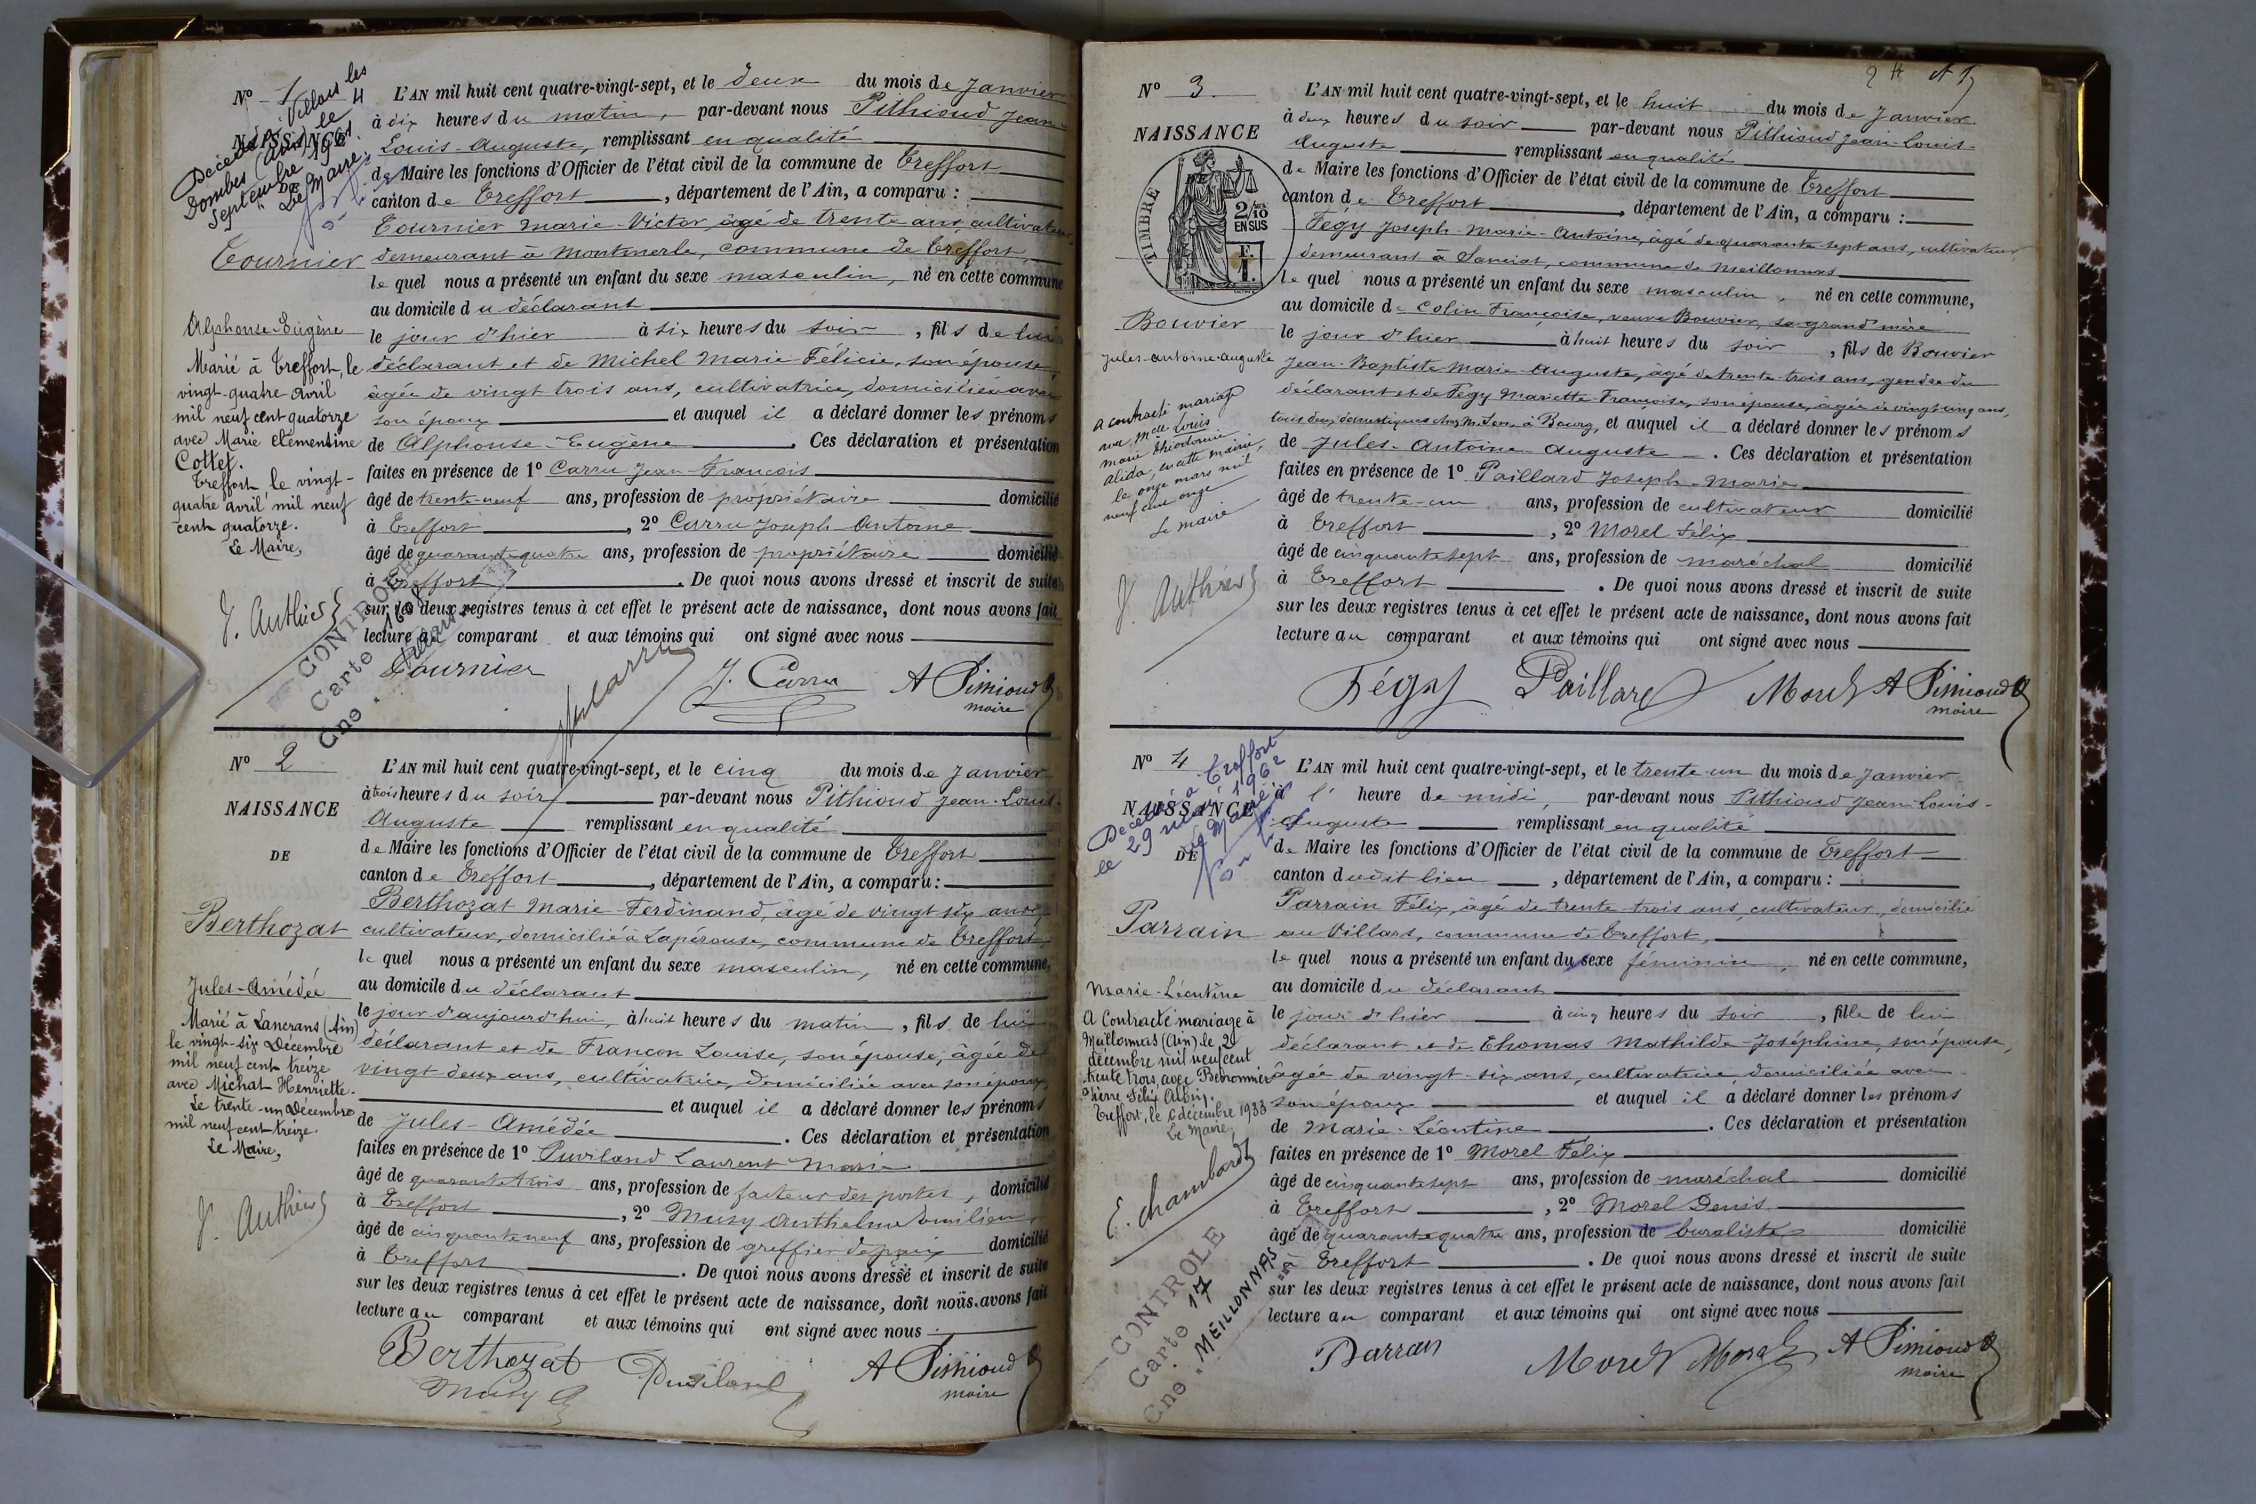 Nº 1
NAISSANCE
Décédé à Villars les
Dombes (Ain) le 4
septembre 1961.
Le Maire,
Tournier
Alphonse-Eugène
Marié à Treffort, le
vingt-quatre avril
mil neuf cent quatorze
avec Marie Clémentine
Cottet.
Treffort le vingt-
quatre avril mil neuf
cent quatorze.
Le Maire,
J. Authier
CONTROLE
Carte 168
Cne. Villars
L'AN mil huit cent quatre-vingt-sept, et le deux du mois de Janvier
à dix heures du matin, par-devant nous Pithioud Jean-
Louis-Auguste, remplissant en qualité
de Maire les fonctions d'Officier de l'état civil de la commune de Treffort
canton de Treffort, département de l'Ain, a comparu :
Tournier Marie-Victor, âgé de trente ans, cultivateur,
demeurant à Montmerle, commune de Treffort,
lequel nous a présenté un enfant du sexe masculin, né en cette commune
au domicile du déclarant
le jour d'hier à six heures du soir, fils de lui
déclarant et de Michel Marie-Félicie, son épouse,
âgée de vingt trois ans, cultivatrice, domiciliée avec
son époux et auquel il a déclaré donner les prénoms
de Alphonse-Eugène. Ces déclaration et présentation
faites en présence de 1º Carru Jean-François
âgé de trente-neuf ans, profession de propriétaire domicilié
à Treffort, 2º Carru Joseph Antoine
âgé de quarante quatre ans, profession de propriétaire domicilié
à Treffort. De quoi nous avons dressé et inscrit de suite
sur les deux registres tenus à cet effet le présent acte de naissance, dont nous avons fait
lecture au comparant et aux témoins qui ont signé avec nous
Tournier Carru J. Carru A Pithioud
maire
Nº 2
NAISSANCE
DE
Berthozat
Jules-Amédée
Marié à Lancrans (Ain)
le vingt-six Décembre
mil neuf cent treize
avec Michat Henriette.
Le trente-un Décembre
mil neuf cent treize.
Le Maire,
J. Authier
L'AN mil huit cent quatre-vingt-sept, et le cinq du mois de Janvier
à trois heures du soir par-devant nous Pithioud Jean-Louis-
Auguste remplissant en qualité
de Maire les fonctions d'Officier de l'état civil de la commune de Treffort
canton de Treffort, département de l'Ain, a comparu :
Berthozat Marie-Ferdinand, âgé de vingt six ans,
cultivateur, domicilié à Lapérouse, commune de Treffort,
lequel nous a présenté un enfant du sexe masculin, né en cette commune,
au domicile du déclarant
le jour d'aujourd'hui, à huit heures du matin, fils de lui
déclarant et de Francon Louise, son épouse, âgée de
vingt deux ans, cultivatrice, domiciliée avec son époux,
et auquel il a déclaré donner les prénoms
de Jules-Amédée. Ces déclaration et présentation
faites en présence de 1º Puviland Laurent Marie
âgé de quarante trois ans, profession de facteur des postes, domicilié
à Treffort, 2º Musy Anthelme Emilien,
âgé de cinquante neuf ans, profession de greffier de paix domicilié
à Treffort. De quoi nous avons dressé et inscrit de suite
sur les deux registres tenus à cet effet le présent acte de naissance, dont nous avons fait
lecture au comparant et aux témoins qui ont signé avec nous
Berthozat Puviland A Pithioud
Musy maire
Nº 3
NAISSANCE
TIMBRE
2/10
EN SUS
Bouvier
Jules-Antoine-Auguste
A contracté mariage
avec Melle Louis
Marie Théodorine
Alida, en cette mairie,
le onze mars mil
neuf cent onze
Le Maire
J. Authier
L'AN mil huit cent quatre-vingt-sept, et le huit du mois de Janvier
à deux heures du soir par-devant nous Pithioud Jean-Louis-
Auguste remplissant en qualité
de Maire les fonctions d'Officier de l'état civil de la commune de Treffort
canton de Treffort, département de l'Ain, a comparu :
Fégy Joseph-Marie-Antoine, âgé de quarante sept ans, cultivateur,
demeurant à Sanciat, commune de Meillonnas
lequel nous a présenté un enfant du sexe masculin, né en cette commune,
au domicile de Colin Françoise, veuve Bouvier, sa grand'mère
le jour d'hier à huit heures du soir, fils de Bouvier
Jean-Baptiste Marie-Auguste, âgé de trente trois ans, gendre du
déclarant et de Fégy Mariette-Françoise, son épouse, âgée de vingt-cinq ans,
tous deux domestiques chez M. à Bourg, et auquel il a déclaré donner les prénoms
de Jules-Antoine-Auguste. Ces déclaration et présentation
faites en présence de 1º Paillard Joseph-Marie
âgé de trente-un ans, profession de cultivateur domicilié
à Treffort, 2º Morel Félix
âgé de cinquante sept ans, profession de maréchal domicilié
à Treffort. De quoi nous avons dressé et inscrit de suite
sur les deux registres tenus à cet effet le présent acte de naissance, dont nous avons fait
lecture au comparant et aux témoins qui ont signé avec nous
Fégy Paillard Morel A Pithioud
maire
Nº 4
NAISSANCE
DE
Décédée à Treffort
le 29 1962
Le Maire
Parrain
Marie-Léontine
A Contracté mariage à
Meillonnas (Ain) le 2
décembre mil neuf cent
trente trois, avec
Pierre Félix Albin.
Treffort, le 6 décembre 1933
Le Maire,
E. Chambard
CONTROLE
Carte 17
Cne. MEILLONNAS
L'AN mil huit cent quatre-vingt-sept, et le trente-un du mois de Janvier
à l'heure de midi, par-devant nous Pithioud Jean-Louis-
Auguste remplissant en qualité
de Maire les fonctions d'Officier de l'état civil de la commune de Treffort
canton dudit lieu, département de l'Ain, a comparu :
Parrain Félix, âgé de trente trois ans, cultivateur, domicilié
au Villard, commune de Treffort,
lequel nous a présenté un enfant du sexe féminin, né en cette commune,
au domicile du déclarant
le jour d'hier à cinq heures du soir, fille de lui
déclarant et de Thomas Mathilde-Joséphine, son épouse,
âgée de vingt-six ans, cultivatrice, domiciliée avec
son époux et auquel il a déclaré donner les prénoms
de Marie-Léontine. Ces déclaration et présentation
faites en présence de 1º Morel Félix
âgé de cinquante sept ans, profession de maréchal domicilié
à Treffort, 2º Morel Denis
âgé de quarante quatre ans, profession de buraliste domicilié
à Treffort. De quoi nous avons dressé et inscrit de suite
sur les deux registres tenus à cet effet le présent acte de naissance, dont nous avons fait
lecture au comparant et aux témoins qui ont signé avec nous
Parran Morel Morel A Pithioud
maire